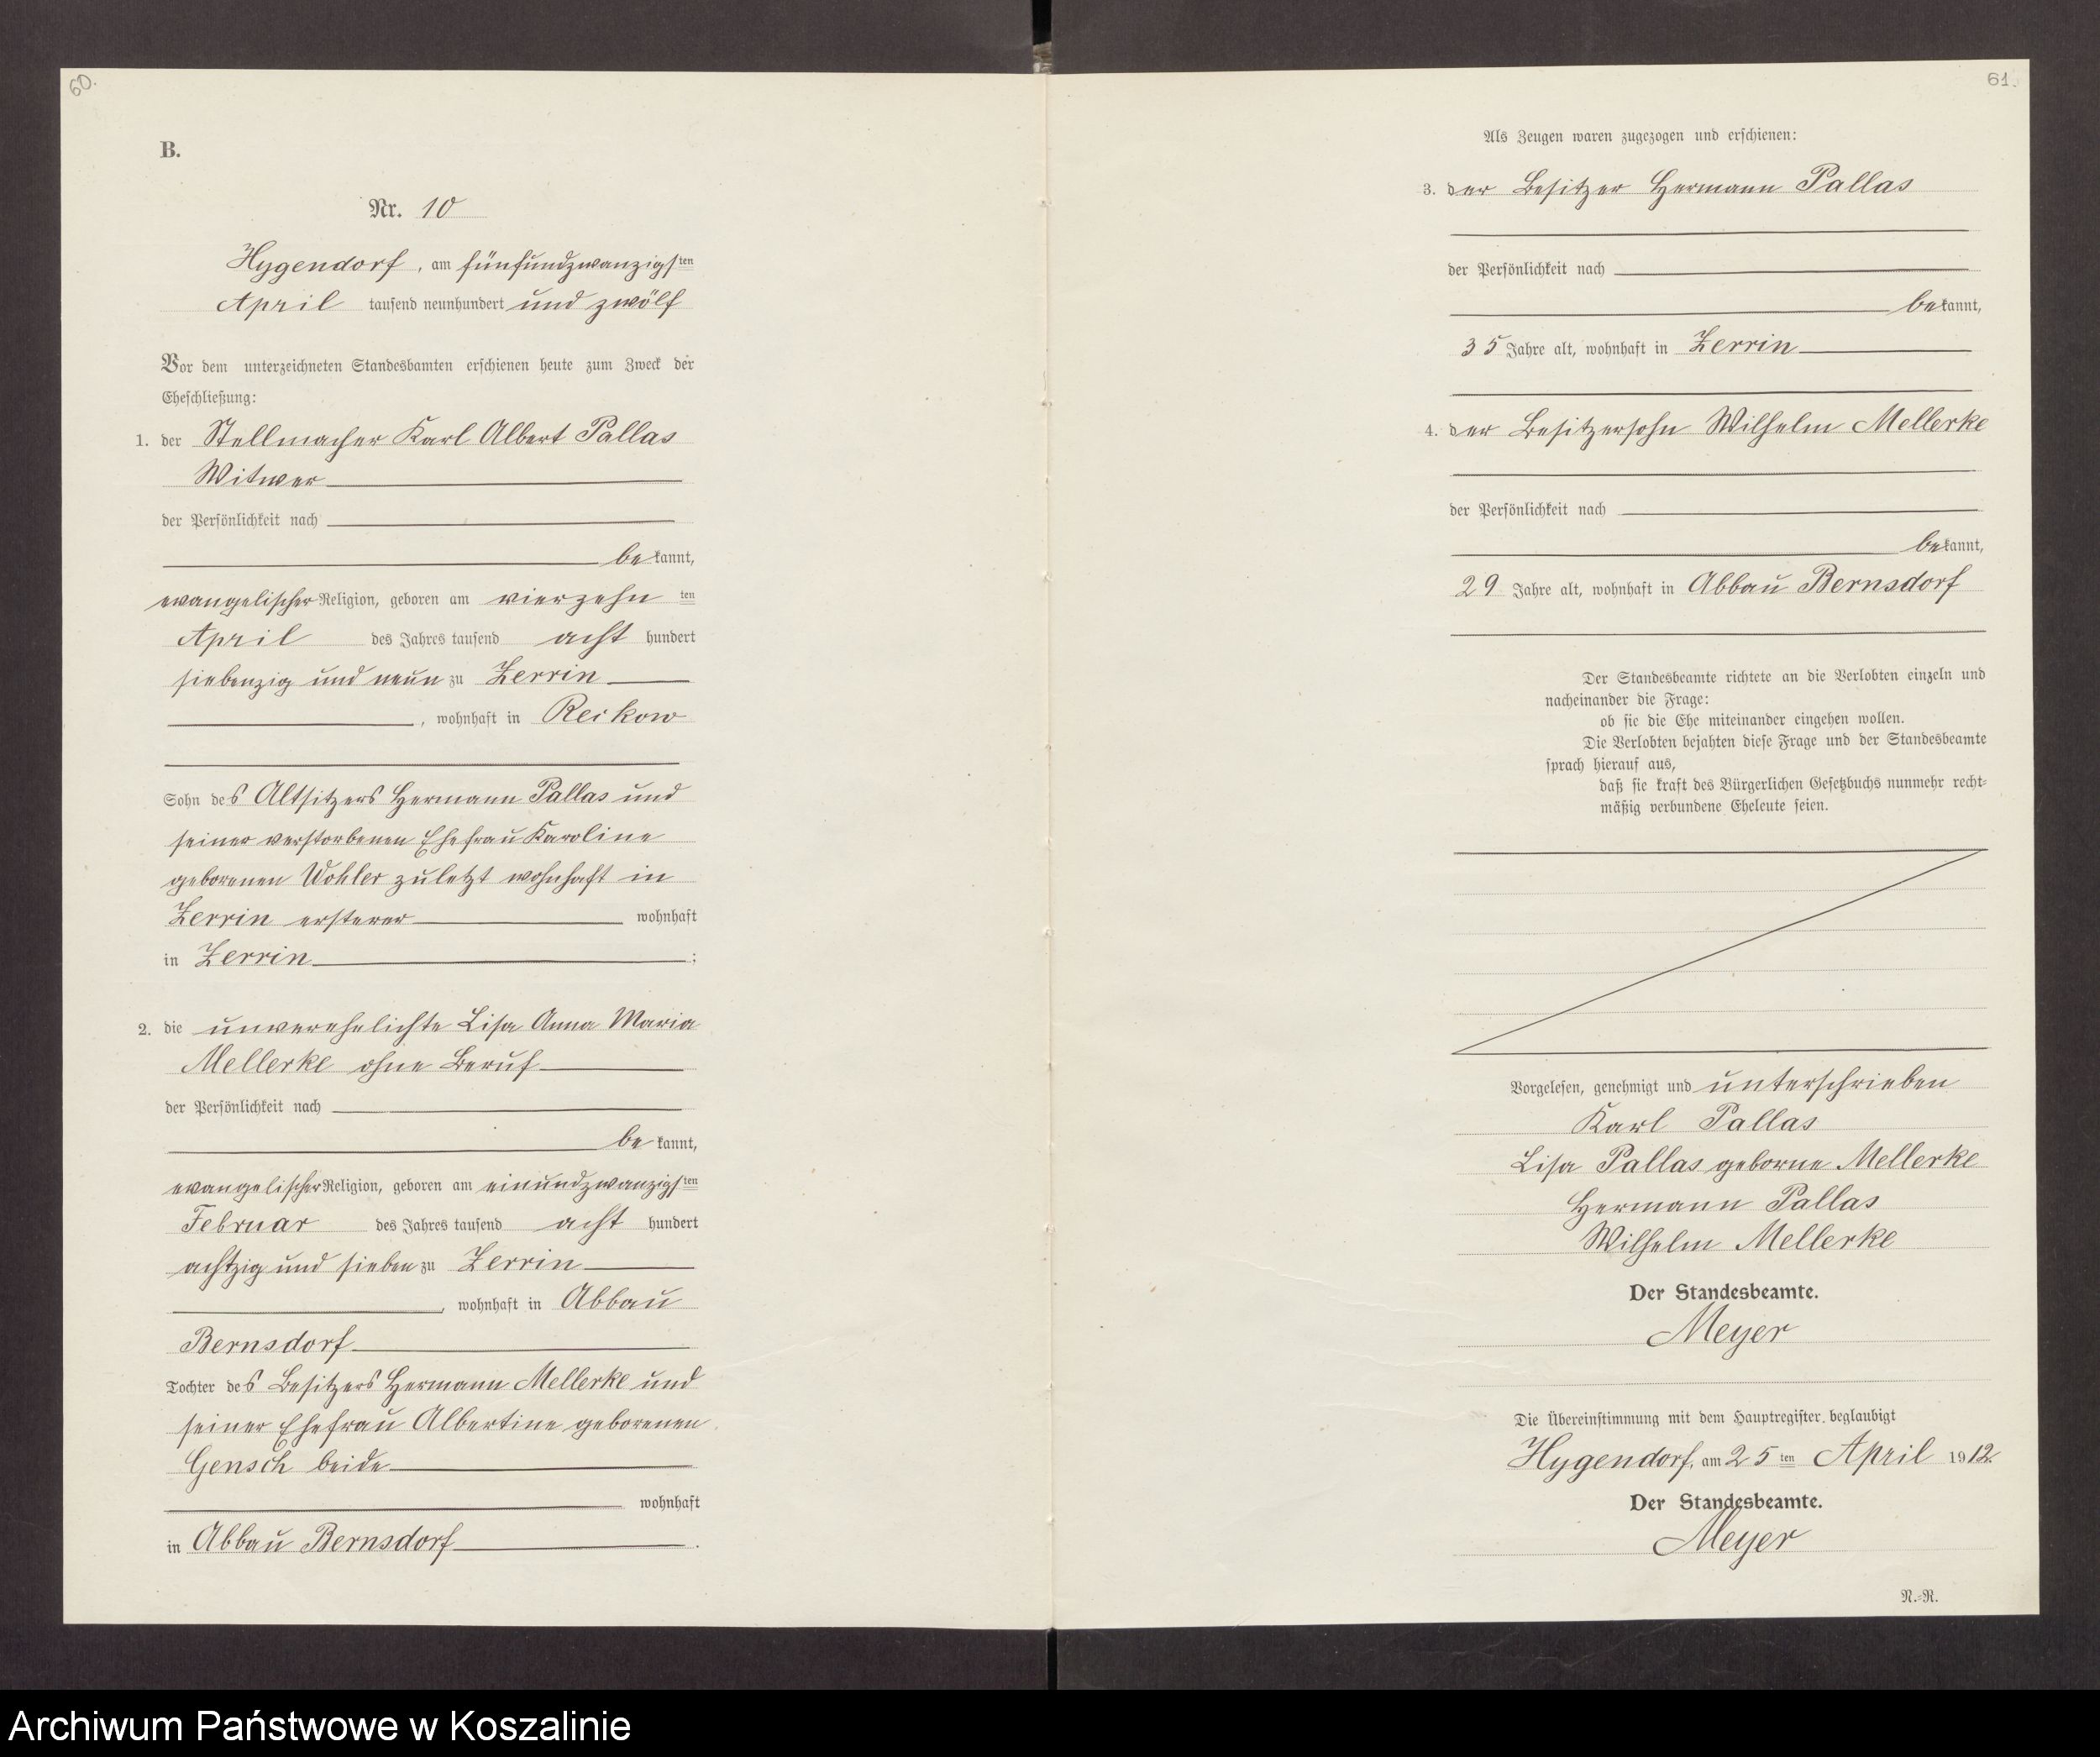 60.
B.
Nr. 10
Hygendorf, am fünfundzwanzigsten
April tausend neunhundert und zwölf
Vor dem unterzeichneten Standesbamten erschienen heute zum Zweck der
Eheschließung:
1. der Stellmacher Karl Albert Pallas
Witwer
der Persönlichkeit nach
bekannt,
evangelischer Religion, geboren am vierzehn ten
April des Jahres tausend acht hundert
siebenzig und neun zu Zerrin
, wohnhaft in Reikow
Sohn des Altsitzers Hermann Pallas und
seiner verstorbenen Ehefrau Karoline
geborenen Wohler zuletzt wohnhaft in
Zerrin ersterer wohnhaft
in Zerrin ;
2. die unverehelichte Lisa Anna Maria
Mellerke ohne Beruf
der Persönlichkeit nach
bekannt,
evangelischer Religion, geboren am einundzwanzigsten
Februar des Jahres tausend acht hundert
achtzig und sieben zu Zerrin
, wohnhaft in Abbau
Bernsdorf
Tochter des Besitzers Hermann Mellerke und
seiner Ehefrau Albertine geborenen
Gensch beide
wohnhaft
in Abbau Bernsdorf .
61.
Als Zeugen waren zugezogen und erschienen:
3. der Besitzer Hermann Pallas
der Persönlichkeit nach
bekannt,
35 Jahre alt, wohnhaft in Zerrin
4. der Besitzersohn Wilhelm Mellerke
der Persönlichkeit nach
bekannt,
29 Jahre alt, wohnhaft in Abbau Bernsdorf
Der Standesbeamte richtete an die Verlobten einzeln und
nacheinander die Frage:
ob sie die Ehe miteinander eingehen wollen.
Die Verlobten bejahten diese Frage und der Standesbeamte
sprach hierauf aus,
daß sie kraft des Bürgerlichen Gesetzbuchs nunmehr recht-
mäßig verbundene Eheleute seien.
Vorgelesen, genehmigt und unterschrieben
Karl Pallas
Lisa Pallas geborne Mellerke
Hermann Pallas
Wilhelm Mellerke
Der Standesbeamte.
Meyer
Die Übereinstimmung mit dem Hauptregister beglaubigt
Hygendorf, am 25 ten April 1912.
Der Standesbeamte.
Meyer
N.-R.
Archiwum Państwowe w Koszalinie